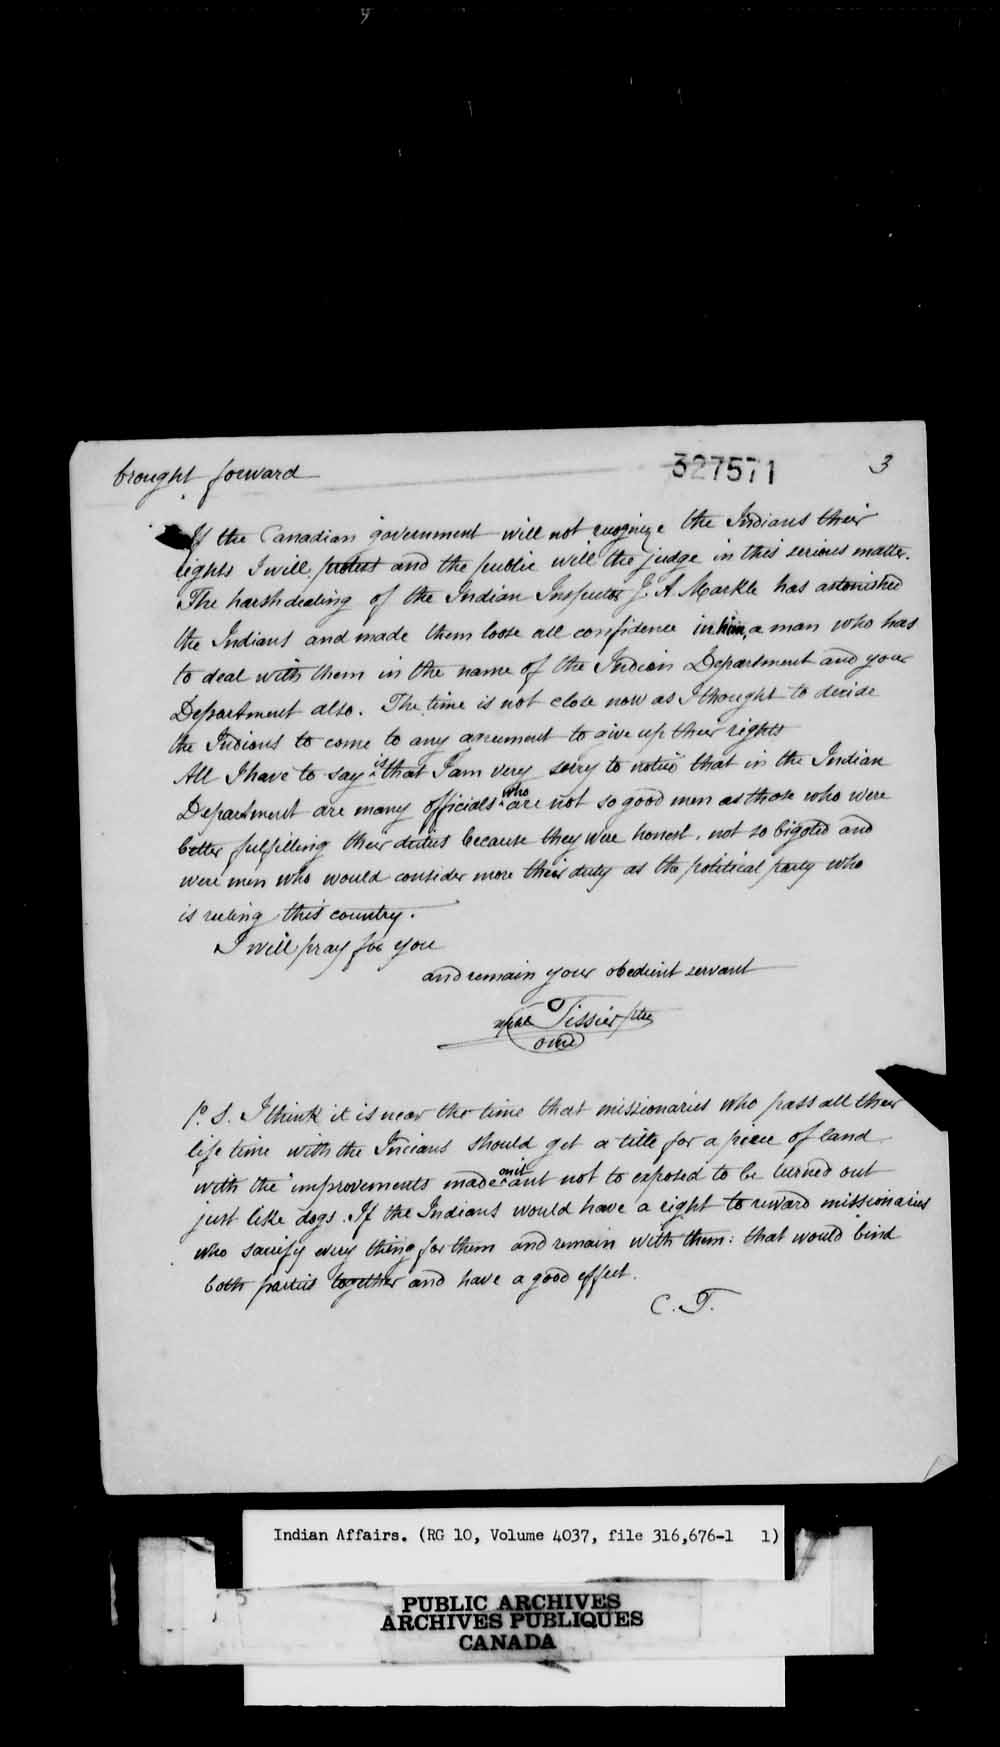 brought forward
327571
3
If the Canadian government will not recognize the Indians their
rights I will protest and the public will the judge in this serious matter.
The harsh dealing of the Indian Inspector J. A. Markle has astonished
the Indians and made them loose all confidence in him, a man who has
to deal with them in the name of the Indian Department and your
Department also. The time is not close now as I thought to decide
the Indians to come to any agreement to give up their rights
All I have to say is that I am very sorry to notice that in the Indian
Department are many officials who are not so good men as those who were
better fulfilling their duties because they were honest, not so biggoted and
were men who would consider more their duty as the political party who
is ruling this country.
I will pray for you
and remain your obedient servant
Tissier ptre
omi
P. S. I think it is near the time that missionaries who pass all their
life time with the Indians should get a title for a piece of land
with the improvements made on it ant not to exposed to be turned out
just like dogs. If the Indians would have a right to reward missionaries
who sacrify every thing for them and remain with them: that would bind
both parties together and have a good effect.
C. T.
Indian Affairs. (RG 10, Volume 4037, file 316,676-1 1)
PUBLIC ARCHIVES
ARCHIVES PUBLIQUES
CANADA